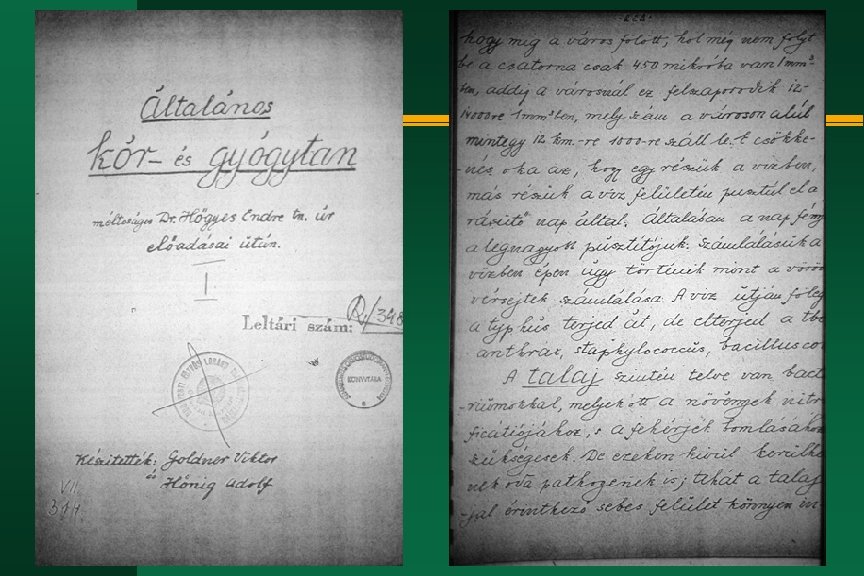 Általános
kór- és gyógytan
méltóságos Dr. Hőgyes Endre tn. úr
előadásai útán.
I.
Leltári szám: R/348
KÖNYVTÁRA
Készitették: Goldner Viktor
és
Hőnig Adolf
VII.
314.
hogy mig a város fölött, hol még nem folyt
be a csatorna csak 450 mikroba van 1 mm³
ben, addig a városnál ez felszaporodik 12-
14000re 1 mm³ben, mely szám a városon alúl
mintegy 12 km.-re 1000-re száll le. E csökke-
nés oka az, hogy egy részük a vizben,
más részük a viz felületén pusztúl el a
rászütő nap által. Általában a nap fény
a legnagyobb pusztítójuk. Számlálásuk a
vizben épen úgy történik mint a vörös
vérsejtek számlálása. A viz útján főleg
a typhus terjed át, de elterjed a tbc
anthrax, staphylococcus, bacillus co
A talaj szintén telve van bact
riumokkal, melyek ott a növények nitri
ficátiójához, s a fehérjék bomlásához
szükségesek. De ezeken kivül kerülhe
nek oda pathogenek is; tehát a talaj
jal érintkező sebes felület könnyen in